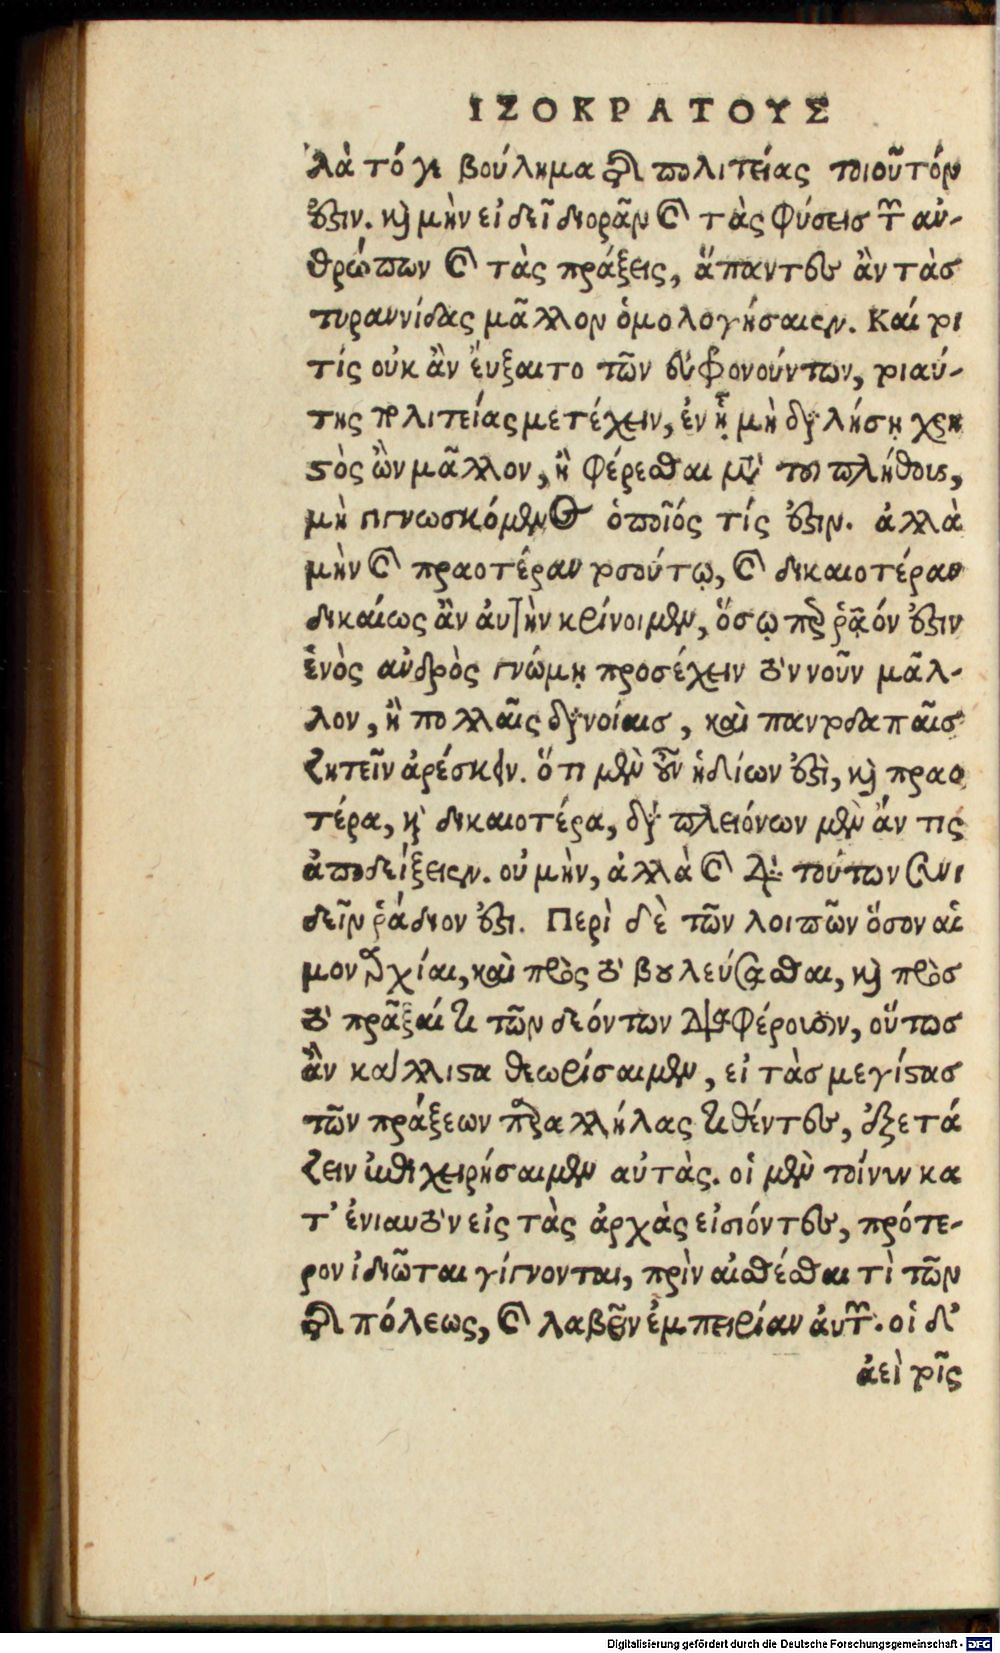 ΙΣΟΚΡΑΤΟΥΣ
λὰ τό γε βούλημα τῆς πολιτείας τοιοῦτόν
ἐστιν. καὶ μὴν εἰ δεῖ διορᾶν καὶ τὰς φύσεις τῶν ἀν-
θρώπων καὶ τὰς πράξεις, ἅπαντες ἂν τὰς
τυραννίδας μᾶλλον ὁμολογήσαιεν. Καί τοι
τίς οὐκ ἂν ἔυξαιτο τῶν εὐφρονούντων, τοιαύ-
της πολιτείας μετέχειν, ἐν ᾗ μὴ διαλήσῃ χρη
στὸς ὢν μᾶλλον, ἢ φέρεσθαι μετὰ τοῦ πλήθους,
μὴ γιγνωσκόμενος ὁποῖός τίς ἐστιν. ἀλλὰ
μὴν καὶ πραοτέραν τοσούτῳ, καὶ δικαιοτέραν
δικαίως ἂν ἀυτὴν κρίνοιμεν, ὅσῳ περ ῥᾷόν ἐστιν
ἑνὸς ἀνδρὸς γνώμῃ προσέχειν τὸν νοῦν μᾶλ-
λον, ἢ πολλαῖς διανοίαις, καὶ παντοδαπαῖς
ζητεῖν ἀρέσκειν. ὅτι μὲν οὖν ἡδίων ἐστὶ, καὶ πραο
τέρα, καὶ δικαιοτέρα, διὰ πλειόνων μὲν ἄν τις
ἀποδείξειεν. οὐ μὴν, ἀλλὰ καὶ διὰ τούτων συνι
δεῖν ῥάδιον ἐστι. Περὶ δὲ τῶν λοιπῶν ὅσον αἱ
μοναρχίαι, καὶ πρὸς τὸ βουλεύσασθαι, καὶ πρὸς
τὸ πρᾶξαί τι τῶν δεόντων διαφέρουσιν, οὕτως
ἂν κάλλιστα θεωρίσαιμεν, εἰ τὰς μεγίστας
τῶν πράξεων παρ' ἀλλήλας τιθέντες, ἐξετά
ζειν ἐπιχειρήσαιμεν αὐτὰς. οἱ μὲν τοίνυν κα
τ' ἐνιαυτὸν εἰς τὰς ἀρχὰς εἰσιόντες, πρότε-
ρον ἰδιῶται γίγνονται, πρὶν αἰσθέσθαι τὶ τῶν
τῆς πόλεως, καὶ λαβεῖν ἐμπειρίαν ἀυτῶν. οἱ δ'
ἀεὶ τοῖς
Digitalisierung gefördert durch die Deutsche Forschungsgemeinschaft - DFG